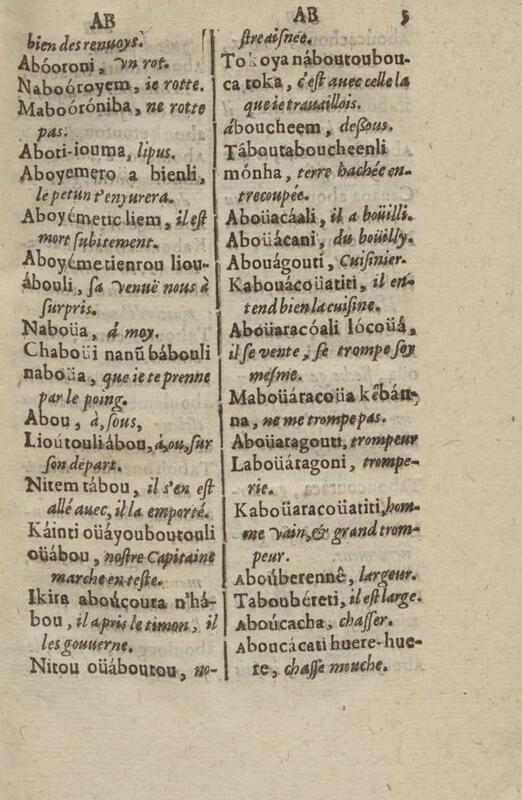 AB
bien des renuoys.
Abóoroni, vn rot.
Naboóroyem, ie rotte.
Maboóróniba, ne rotte
pas.
Aboti-iouma, lipus.
Aboyemero a bienli,
le petun t'enyurera.
Aboyémetic liem, il est
mort subitement.
Aboyémetienrou liou-
ábouli, sa venuë nous à
surpris.
Naboüa, á moy.
Chaboüi nanũ bábouli
naboüa, que ie te prenne
par le poing.
Abou, à, sous,
Lioútouliábou, à, ou, sur
son départ.
Nitem tábou, il s'en est
allé auec, il la emporté.
Káinti oüáyouboutouli
oüábou, nostre Capitaine
marche en teste.
Ikira aboúcoura n'há-
bou, il a pris le timon, il
les gouuerne.
Nitou oüáboutou, no-
AB 5
stre aisnée.
Tokoya náboutoubou-
ca toka, c'est auec celle la
que ie trauaillois.
áboucheem, dessous.
Táboutaboucheenli
mónha, terre hachée en-
trecoupée.
Aboüacáali, il a boüilli.
Aboüácani, du boüilly.
Abouágouti, Cuisinier.
Kabouácoüatiti, il en-
tend bien la cuisine.
Aboüaracóali lócoüá,
il se vente, se trompe soy
mesme.
Maboüáracoüa kêbán-
na, ne me trompe pas.
Aboüaragouti, trompeur
Laboüáragoni, trompe-
rie.
Kaboüaracoüatiti, hom-
me vain, & grand trom-
peur.
Aboúberennê, largeur.
Taboubéreti, il est large.
Aboúcacha, chasser.
Aboucácati huere-hue-
re, chasse mouche.